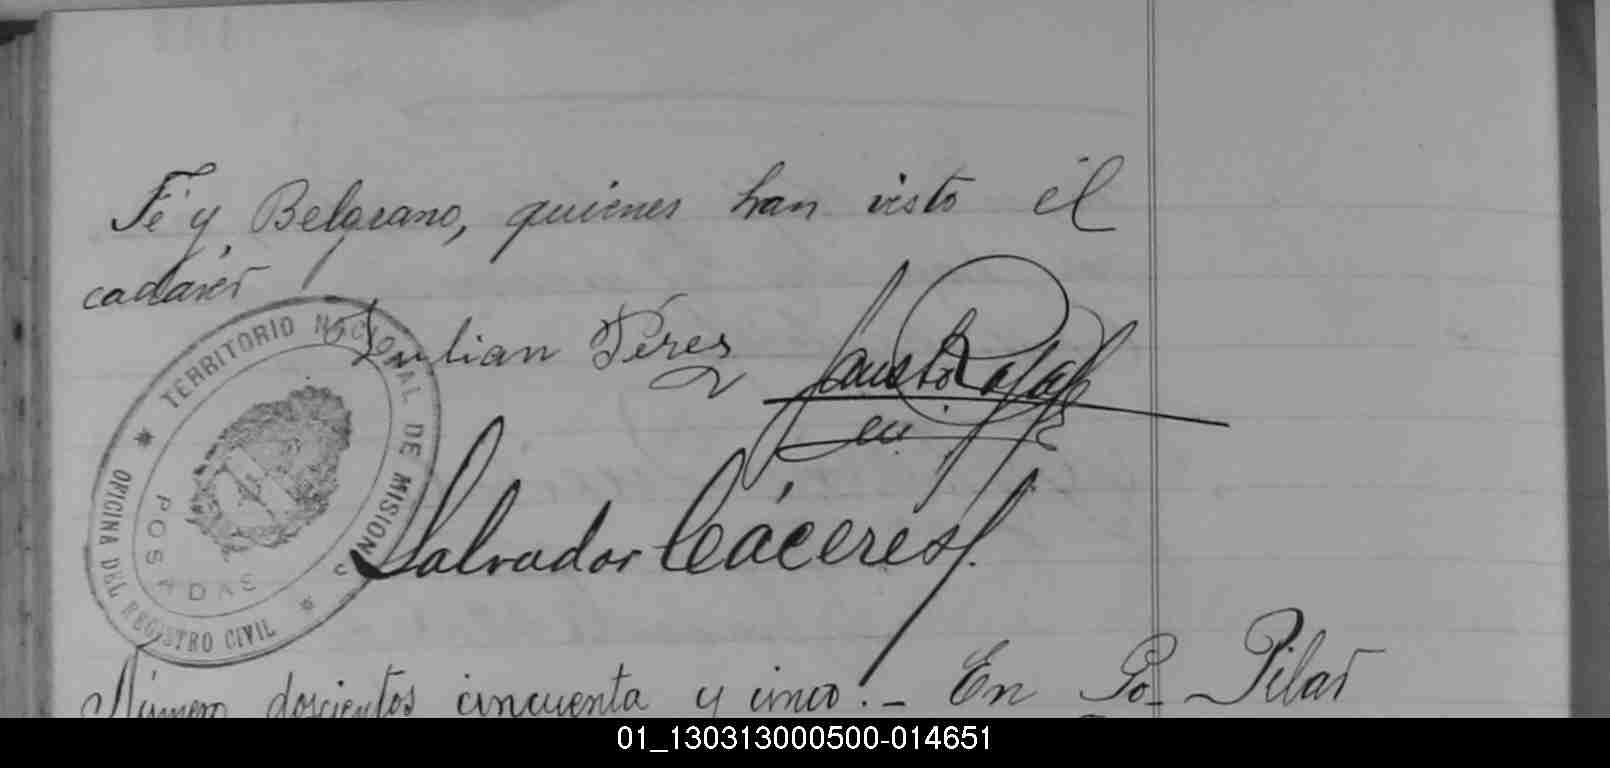 Fé y Belgrano, quienes han visto el
cadáver
Julian Péres
Fausto
Salvador Cáceres
TERRITORIO NACIONAL DE MISIONES
OFICINA DEL REGISTRO CIVIL
POSADAS
Número doscientos cincuenta y cinco.- En Po Pilar
01_130313000500-014651